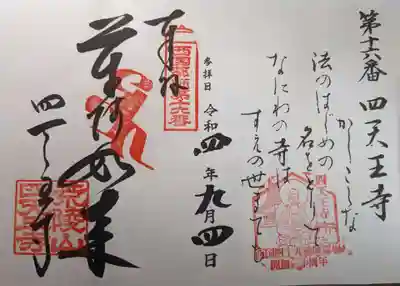 第十六番 四天王寺
かしこしな
法のはじめの
名をとりて
なにわの寺は
すえの世までも
参拝日 令和四年九月四日
奉拝
西国薬師第十六番
薬師如来
四天王寺
荒陵山
四天王寺